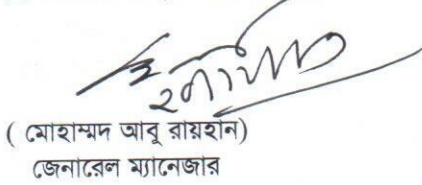 ( মোহাম্মদ আবু রায়হান)
জেনারেল ম্যানেজার